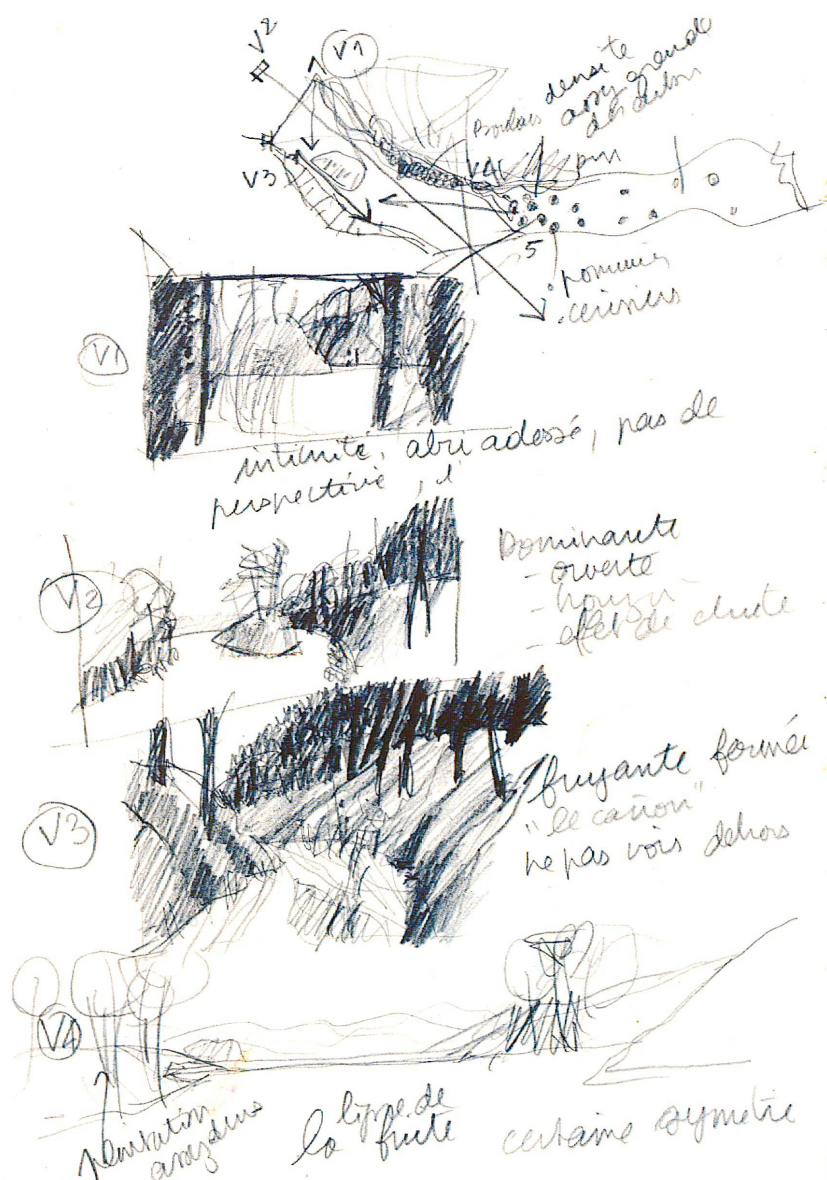 V2
V1
densité
assez grande
V3
V4
pin
5
pommiers
cerisiers
V1
intimité, abri adossé, pas de
perspective,
V2
Dominante
- ouverte
- horizon
- effet de chute
V3
fuyante fermée
"le cañon"
ne pas voir dehors
V4
plantation
assez dense
la ligne de
fuite
certaine symétrie